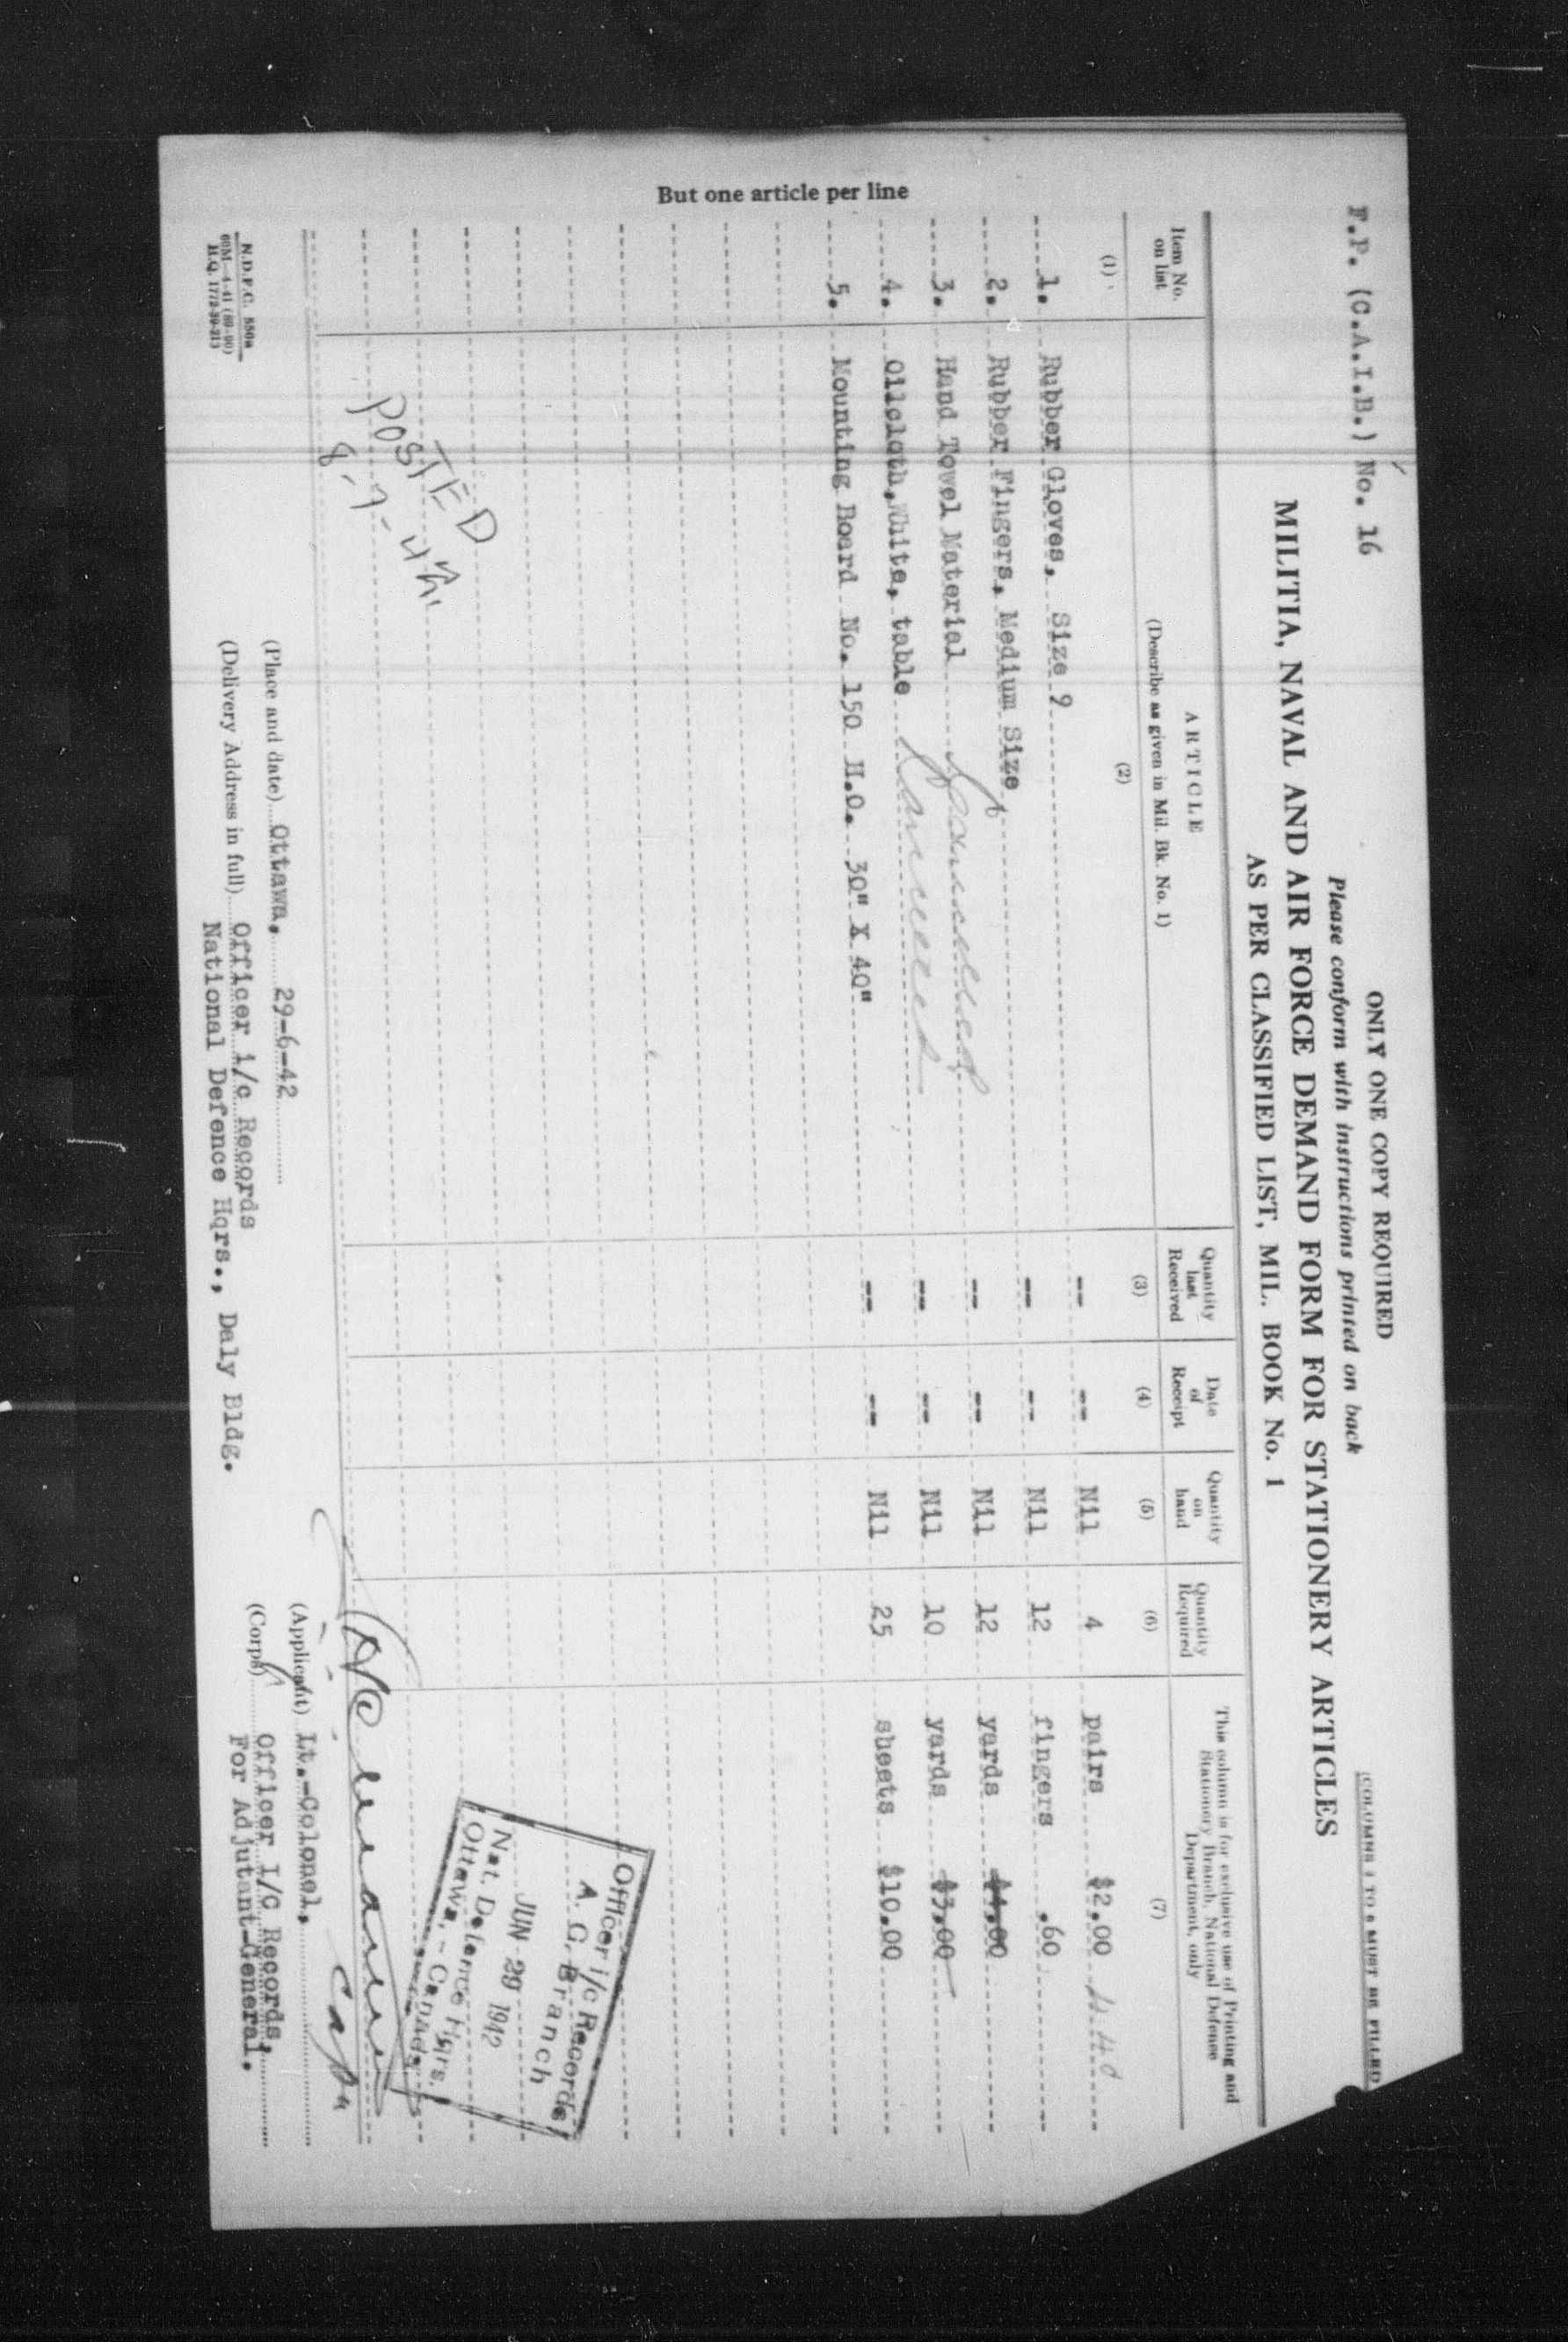 F.P. (C.A.I.B.) No. 16
ONLY ONE COPY REQUIRED
Please conform with instructions printed on back
(COLUMNS 1 TO 6 MUST BE FILLED
MILITIA, NAVAL AND AIR FORCE DEMAND FORM FOR STATIONERY ARTICLES
AS PER CLASSIFIED LIST, MIL. BOOK No. 1
Item No. on list
(1)
ARTICLE
(Describe as given in Mil. Bk. No. 1)
(2)
Quantity last Received
(3)
Date of Receipt
(4)
Quantity on hand
(5)
Quantity Required
(6)
This column is for exclusive use of Printing and Stationery Branch, National Defence Department, only
(7)
But one article per line
1. Rubber Gloves, Size 9 -- -- Nil 4 pairs $2.00 4.40
2. Rubber Fingers, Medium Size -- -- Nil 12 fingers .60
3. Hand Towel Material Cancelled -- -- Nil 12 yards $4.00
4. Oilcloth, White, table Cancelled -- -- Nil 10 yards $3.00
5. Mounting Board No. 150 H.O. 30" X 40" -- -- Nil 25 sheets $10.00
POSTED
8-7-42.
Officer i/c Records
A. G. Branch
JUN 29 1942
Nat. Defence Hqrs.
Ottawa, - Canada
Capt
N.D.F.C. 550a
60M-4-41 (80-90)
H.Q. 1772-39-213
(Place and date) Ottawa, 29-6-42
(Delivery Address in full) Officer i/c Records
National Defence Hqrs., Daly Bldg.
(Applicant) Lt.-Colonel,
(Corps) Officer I/C Records,
For Adjutant-General.